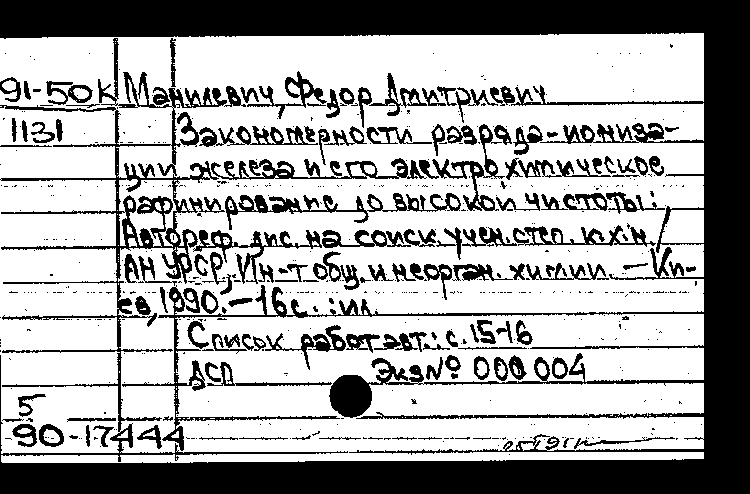 91-50к Манилевич, Федор Дмитриевич
1131 Закономерности разряда-иониза-
ции железа и его электрохимическое
рафинирование до высокой чистоты:
Автореф. дис. на соиск. учен. степ. к.х.н./
АН УРСР, Ин-т общ. и неорган. химии. — Ки-
ев, 1990. — 16 с. : ил.
Список работ авт.: с. 15-16
ДСП Экз № 000 004
5
90-17444